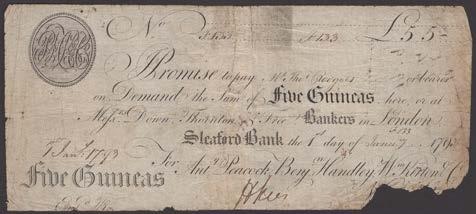 No A133 A133 £5 5
I Promise to pay Mr Thos or bearer
on Demand the Sum of Five Guineas here, or at
Messrs Down, Thornton & Free Bankers in London
A133
Sleaford Bank the 1st day of Janry 179
1 Janry 1793 For Anty Peacock, Benjn Handley, Wm Kirton & Co
Five Guineas